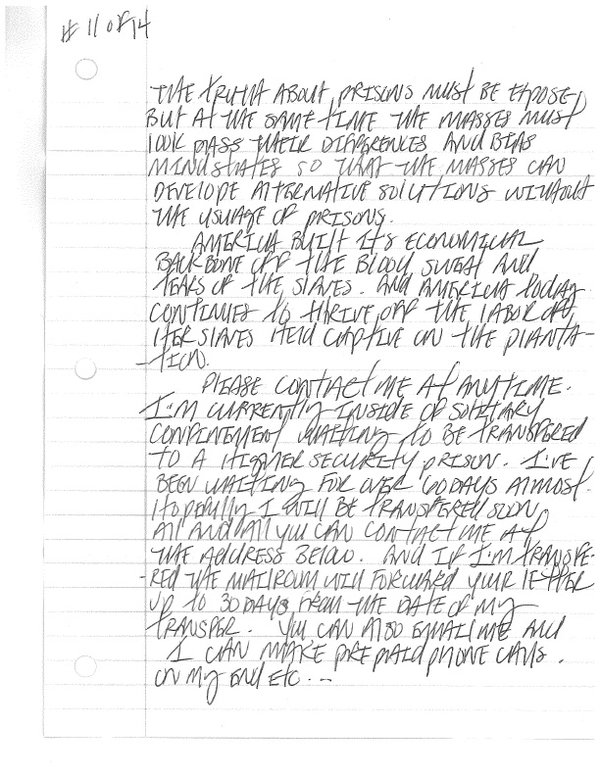 # 11 OF 14
THE TRUTH ABOUT PRISONS MUST BE EXPOSE,
BUT AT THE SAME TIME THE MASSES MUST
LOOK PASS THEIR DIFFERENCES AND BIAS
MINDSTATES SO THAT THE MASSES CAN
DEVELOPE ALTERNATIVE SOLUTIONS WITHOUT
THE USUAGE OF PRISONS.
AMERICA BUILT ITS ECONOMICAL
BACKBONE OFF THE BLOOD SWEAT AND
TEARS OF THE SLAVES. AND AMERICA TODAY
CONTINUES TO THRIVE OFF THE LABOR OF
HER SLAVES HELD CAPTIVE ON THE PLANTA-
-TION.
PLEASE CONTACT ME AT ANYTIME.
I'M CURRENTLY INSIDE OF SOLITARY
CONFINEMENT WAITING TO BE TRANSFERED
TO A HIGHER SECURITY PRISON. I'VE
BEEN WAITING FOR OVER 60 DAYS ALMOST.
HOPEFULLY I WILL BE TRANSFERED SOON
ALL AND ALL YOU CAN CONTACT ME AT
THE ADDRESS BELOW. AND IF I'M TRANSFE-
-RED THE MAILROOM WILL FORWARD YOUR LETTER
UP TO 30 DAYS FROM THE DATE OF MY
TRANSFER. YOU CAN ALSO EMAIL ME AND
I CAN MAKE PREPAID PHONE CALLS.
ON MY END ETC...